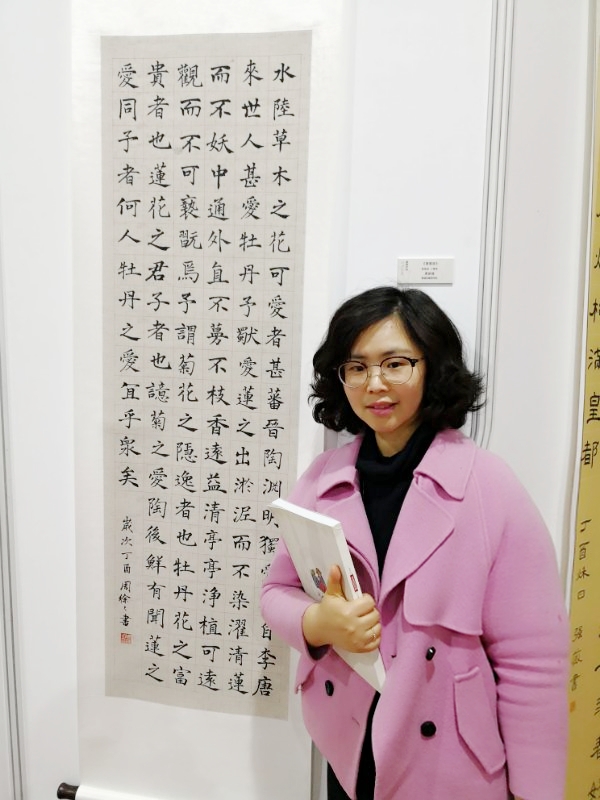 水陸草木之花可愛者甚蕃晉陶淵明獨愛自李唐
來世人甚愛牡丹予愛蓮之出淤泥而不染濯清蓮
而不妖中通外直不蔓不枝香遠益清亭亭净植可遠
觀而不可褻翫焉予謂菊花之隱逸者也牡丹花之富
貴者也蓮花之君子者也噫菊之愛陶後鮮有聞蓮之
愛同予者何人牡丹之愛宜乎衆矣
歲次丁酉周徐々書
烟柳滿皇都
丁酉